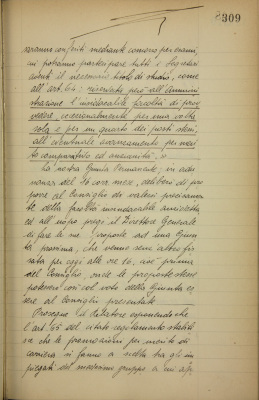 309
saranno conferiti mediante concorso per esami,
cui potranno partecipare tutti i Segretari
aventi il necessario titolo di studio, come
all'art. 64; riservata però all'Ammini
strazione l'insindacabile facoltà di prov
vedere, eccezionalmente per una volta
sola e per un quarto dei posti stessi,
all'eventuale avanzamento per meri
to comparativo ed anzianità, ".
La nostra Giunta Permanente, in adu
nanza del 16 corr. mese, deliberò di pro
porre al Consiglio di valersi precisamen
te della facoltà insindacabile suindicata
ed all'uopo pregò il Direttore Generale
di fare le sue proposte ad una Giun
ta prossima, che venne
sata per oggi alle ore 16, cioè prima
del Consiglio, onde le proposte stesse
potessero poi col voto della Giunta es
sere al Consiglio presentate.
Prosegue il relatore esponendo che
l'art. 65 del citato regolamento stabili
sce che le promozioni per merito di
carriera si fanno a scelta tra gli im
piegati del medesimo gruppo e